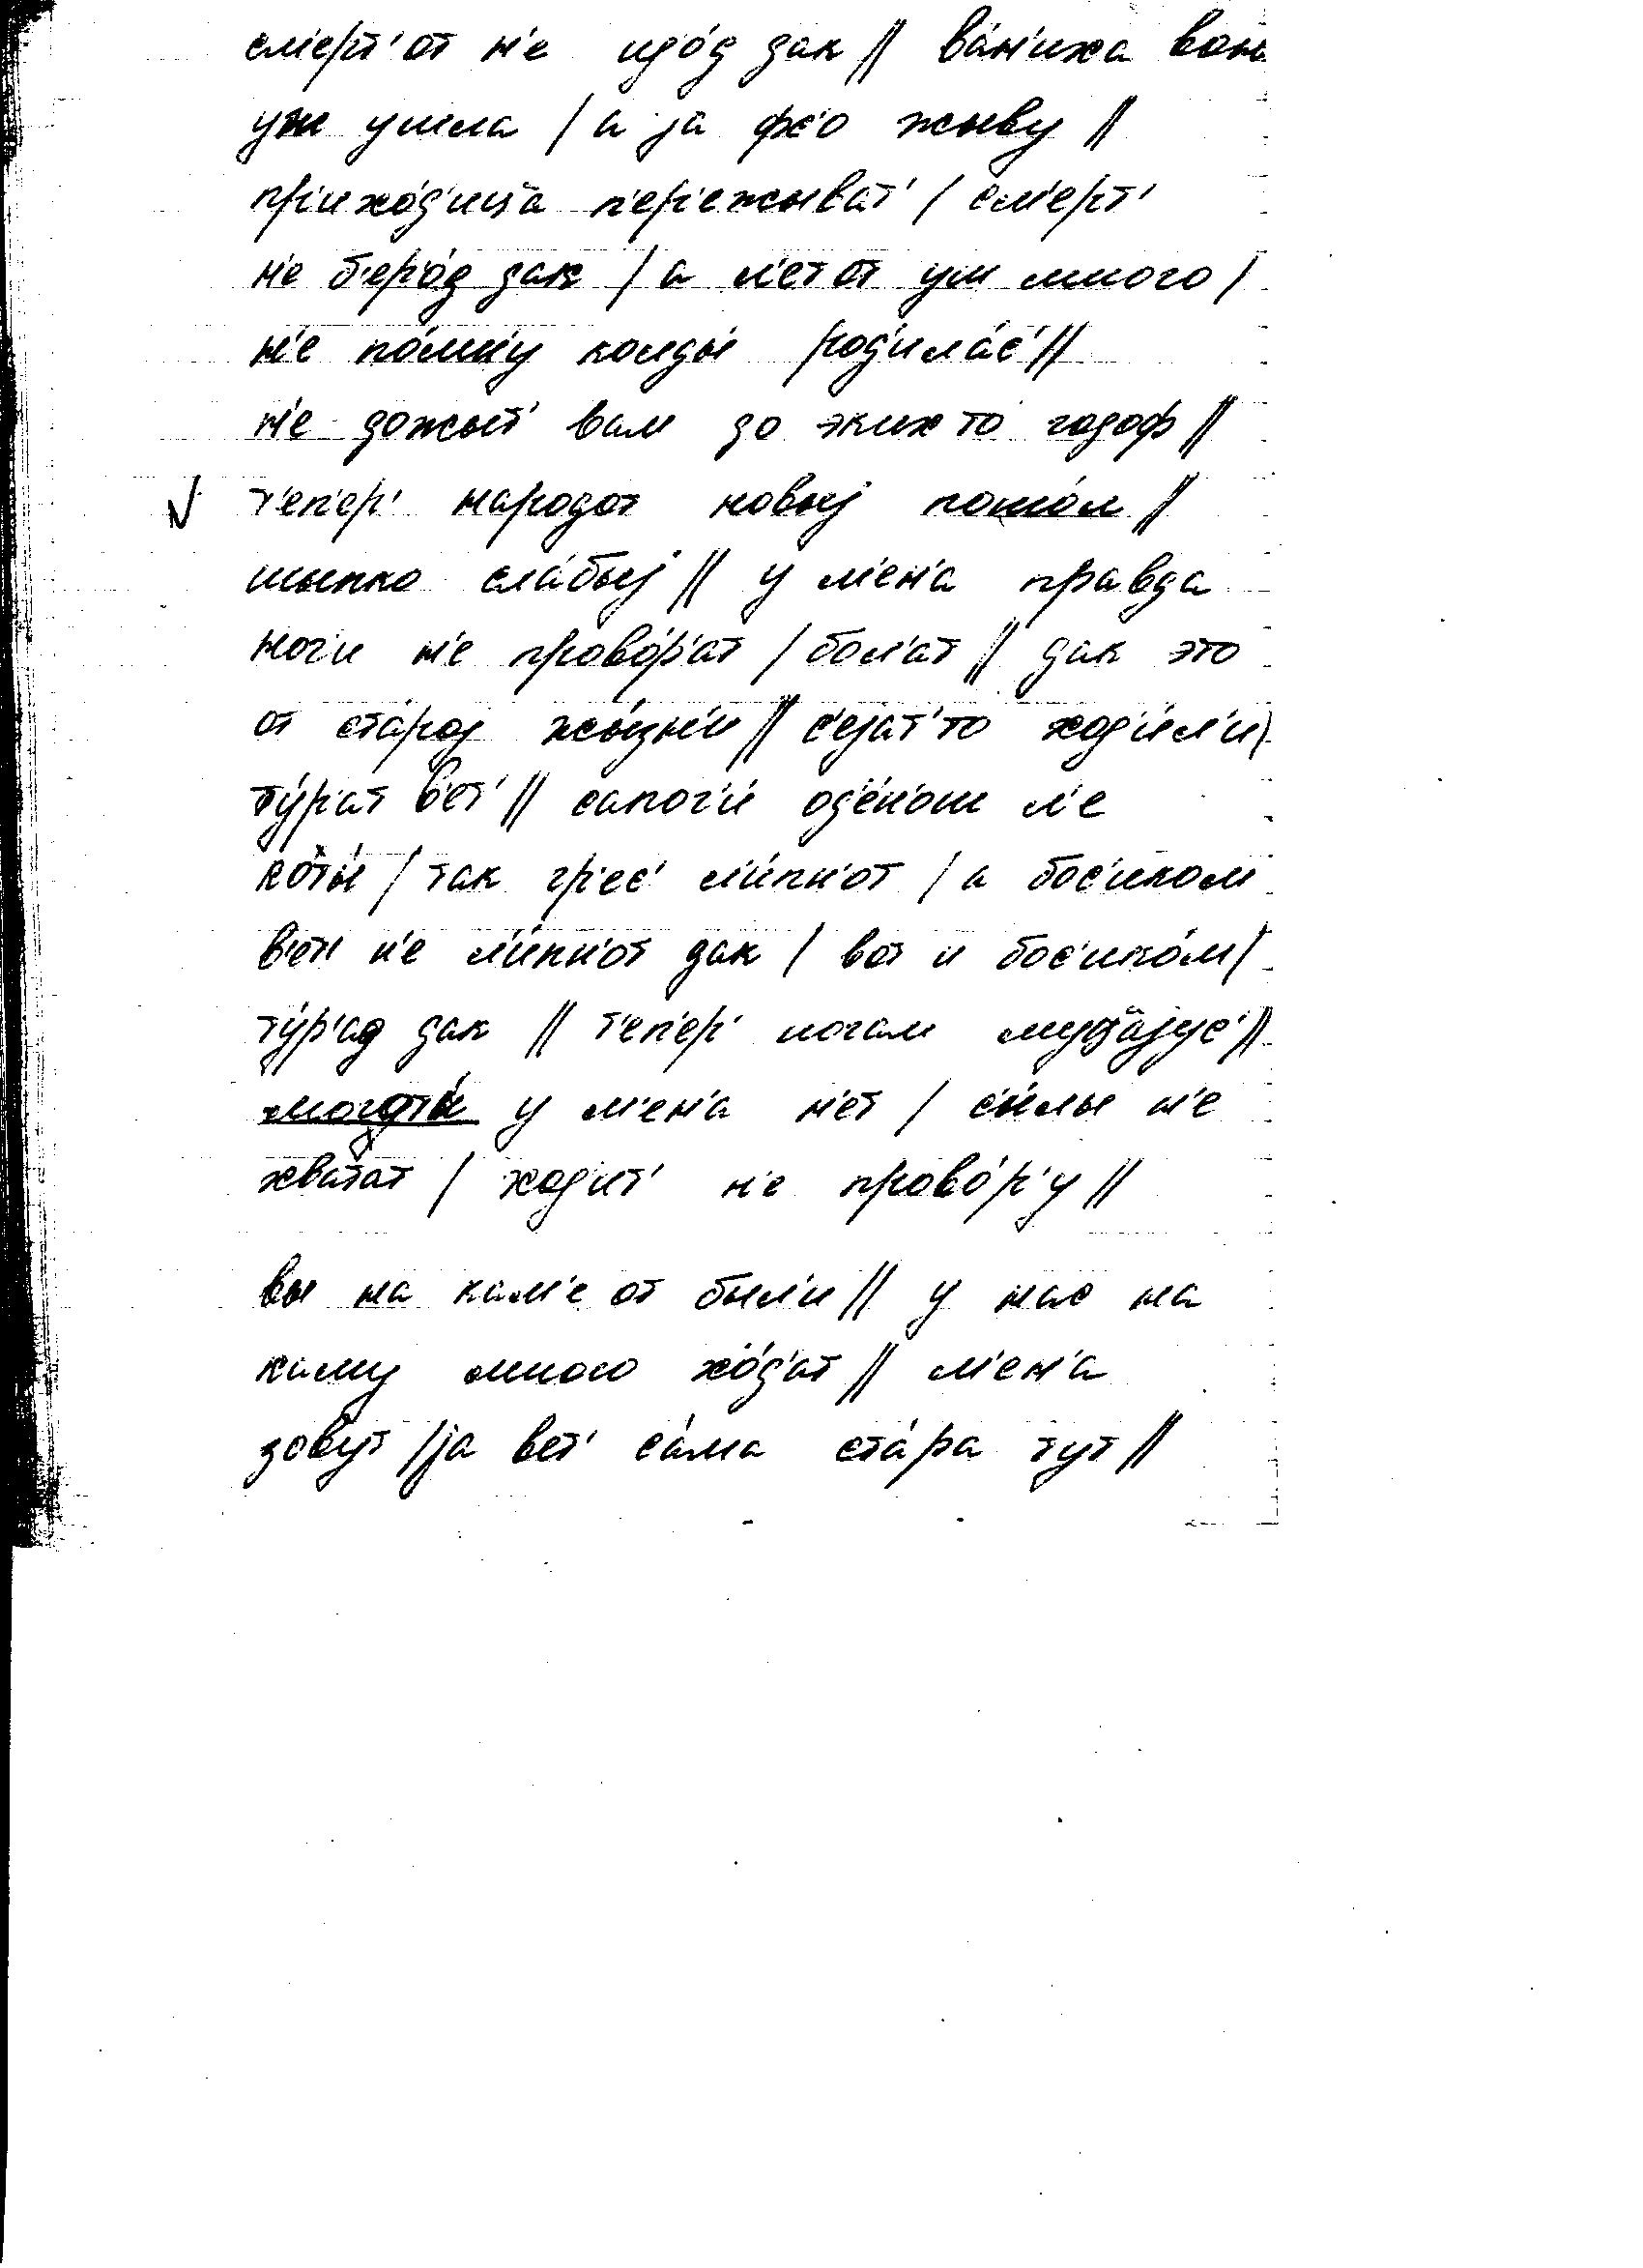 см'ерт'от н'е идо́д дак // ва́н'иха вон
уш ушла / а jа фс'о жыву //
пр'ихо́д'ица п'ер'ежыват' / см'ерт'
н'е б'еро́д дак / а л'етот уш много /
н'е по́мн'у колды́ род'ила́с' //
н'е дожыт' вам до экихто годоф //
т'еп'ер' народот новыj пошо́л //
шыпко сла́быj // у м'ен'а правда
ног'и н'е прово́р'ат / бол'ат // дак это
от ста́роj жы́зн'и // с'ejат'то ход'и́л'и /
ту́р'ат в'ет' // сапог'и́ од'е́н'ош л'е
коты́ / так гр'ес' л'и́пн'от / а бос'иком
в'ет' н'е л'и́пн'от дак / вот и бос'ико́м /
ту́р'ад дак // т'еп'ер' ногам муцаjус' //
моготы́ у м'ен'а н'ет / с'и́лы н'е
хватат / ход'ит' н'е прово́р'у //
вы на кам'е от были // у нас на
каму много хо́д'ат // м'ен'а
зовут / jа вет' са́ма ста́ра тут //